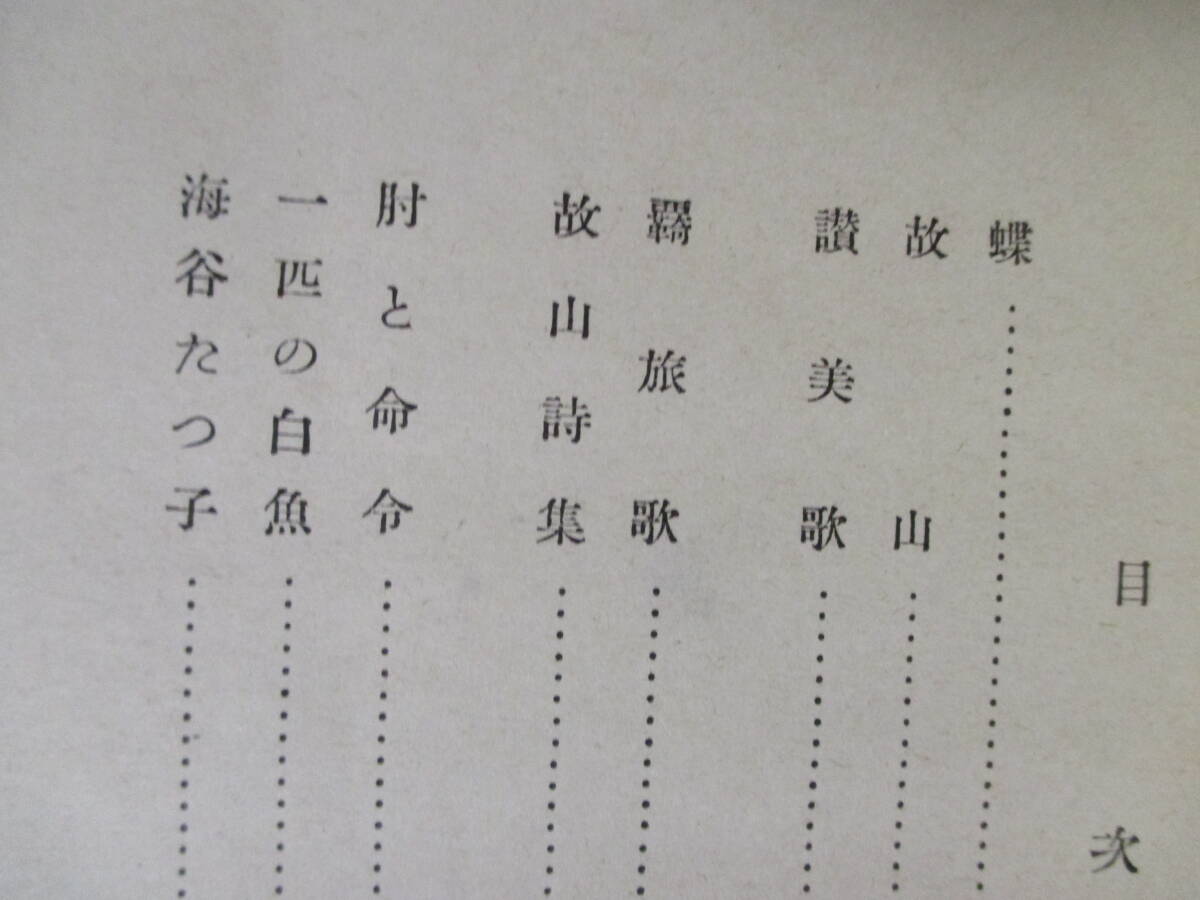 目次
蝶…………
故山…………
讃美歌…………
羇旅歌…………
故山詩集…………
肘と命令…………
一匹の白魚…………
海谷たつ子…………